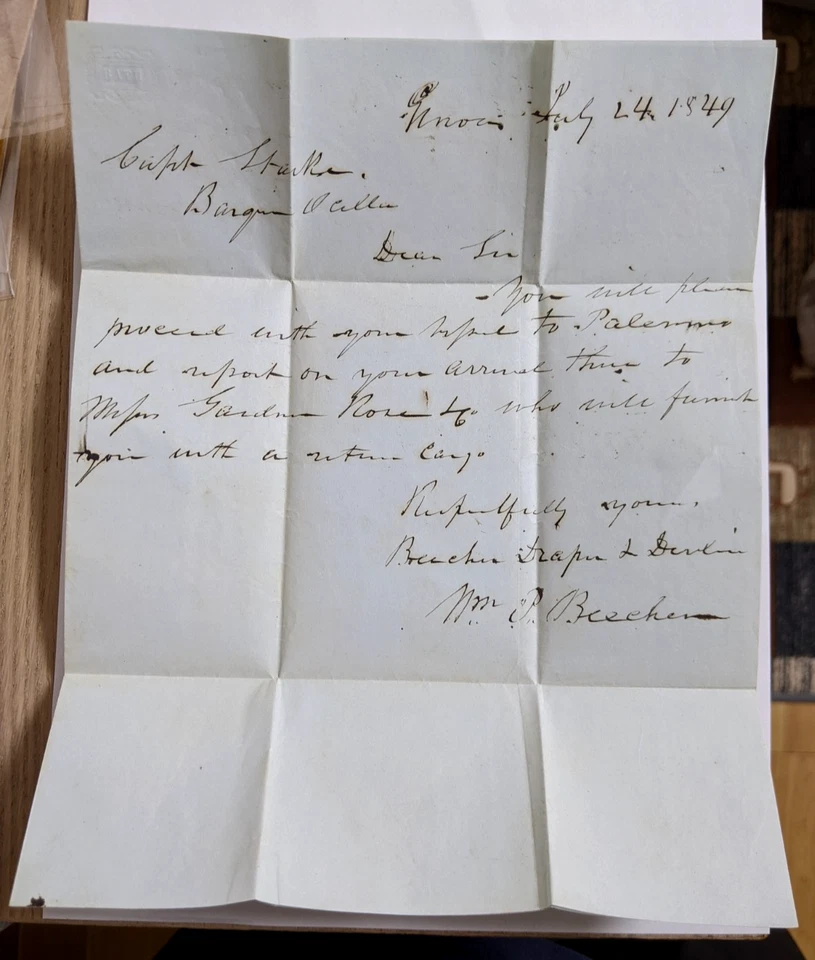 Genoa July 24. 1849
Capt Starke.
Barque Ocilla
Dear Sir
You will please
proceed with your vessel to Palermo
and report on your arrival there to
Messrs Gardner Rose & Co who will furnish
you with a return cargo
Respectfully yours,
Beecher Draper & Devlin
Wm P. Beecher